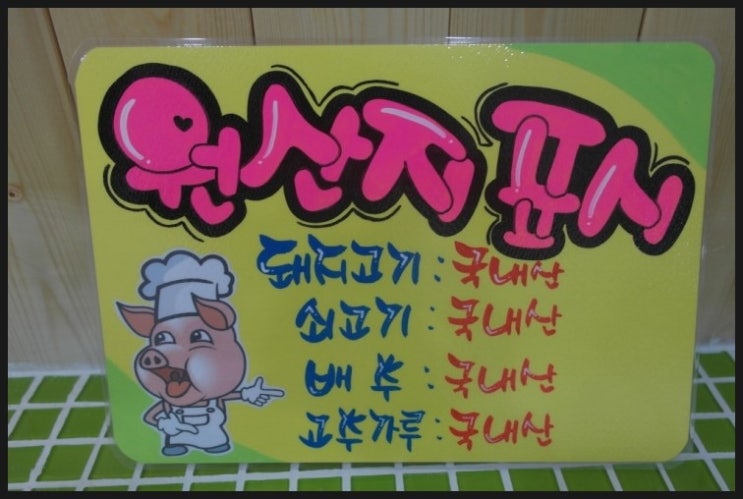 원산지 표시
돼지고기 : 국내산
쇠고기 : 국내산
배추 : 국내산
고추가루 : 국내산